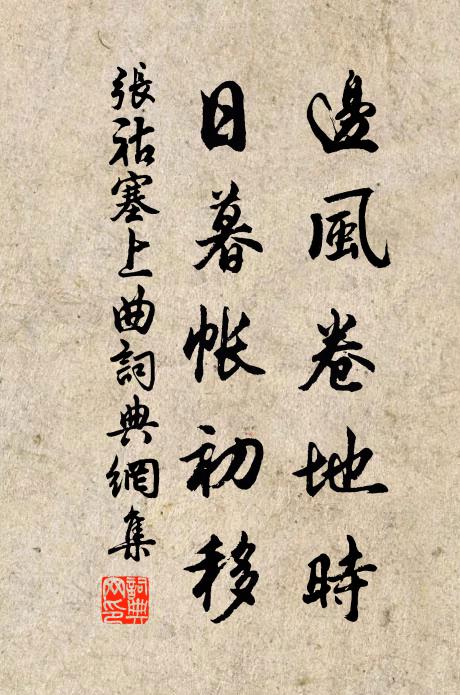 邊風卷地時
日暮帐初移
張祜塞上曲詞典網集
詞典
网印